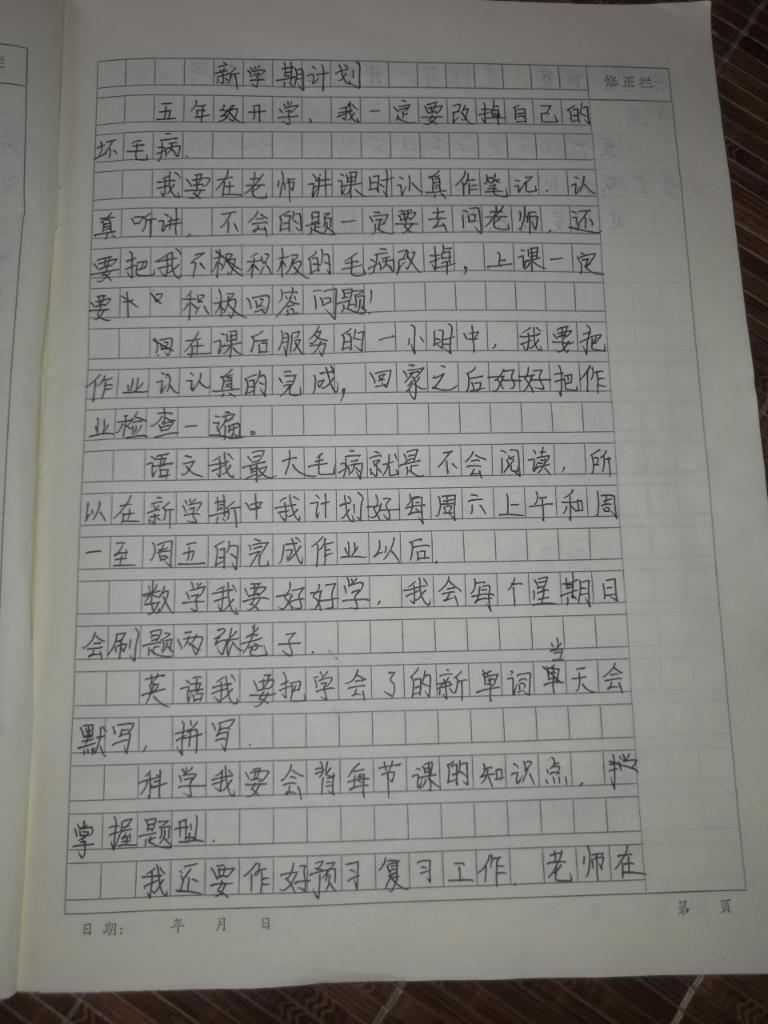 新学期计划
修正栏
五年级开学，我一定要改掉自己的
坏毛病.
我要在老师讲课时认真作笔记.认
真听讲，不会的题一定要去问老师.还
要把我不极积极的毛病改掉，上课一定
要积极回答问题！
在课后服务的一小时中，我要把
作业认认真的完成，回家之后好好把作
业检查一遍。
语文我最大毛病就是不会阅读，所
以在新学斯中我计划好每周六上午和周
一至周五的完成作业以后.
数学我要好好学.我会每个星期日
会刷题两张卷子.
当
英语我要把学会了的新单词单天会
默写，拼写.
科学我要会背每节课的知识点.
掌握题型.
我还要作好预习复习工作.老师在
日期： 年 月 日
第 页